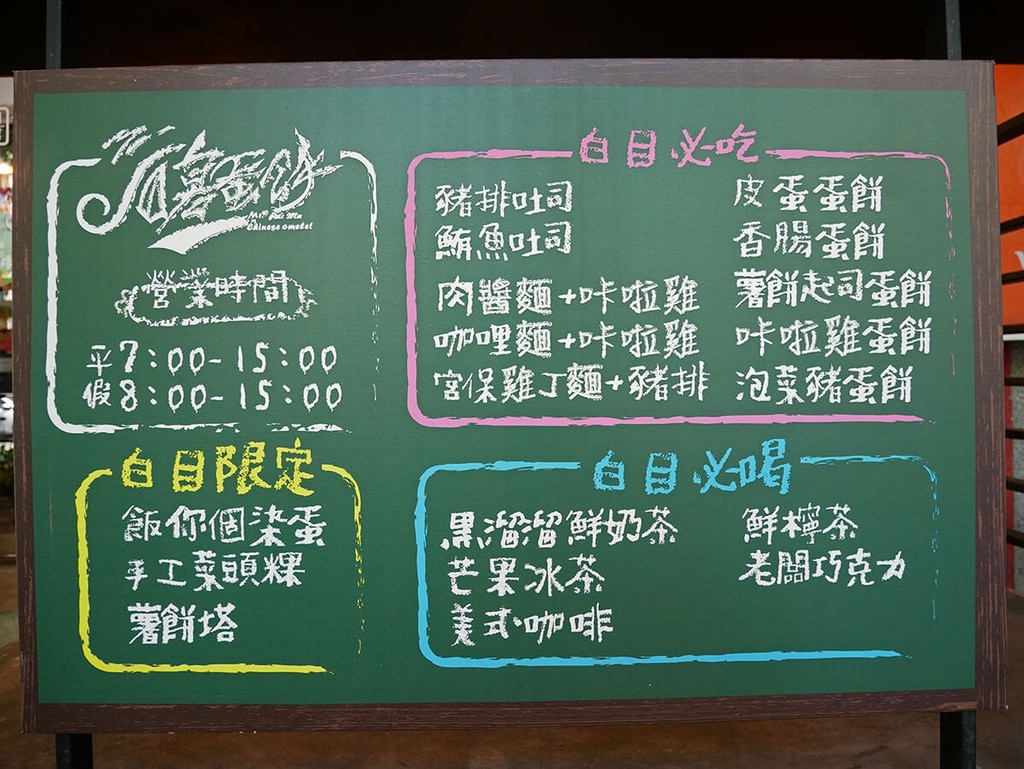 Chinese omelet
營業時間
平7:00-15:00
假8:00-15:00
白目必吃
豬排吐司
鮪魚吐司
肉醬麵+咔啦雞
咖哩麵+咔啦雞
宮保雞丁麵+豬排
皮蛋蛋餅
香腸蛋餅
薯餅起司蛋餅
咔啦雞蛋餅
泡菜豬蛋餅
白目限定
飯你個染蛋
手工菜頭粿
薯餅塔
白目必喝
黑溜溜鮮奶茶
芒果冰茶
美式咖啡
鮮檸茶
老闆巧克力